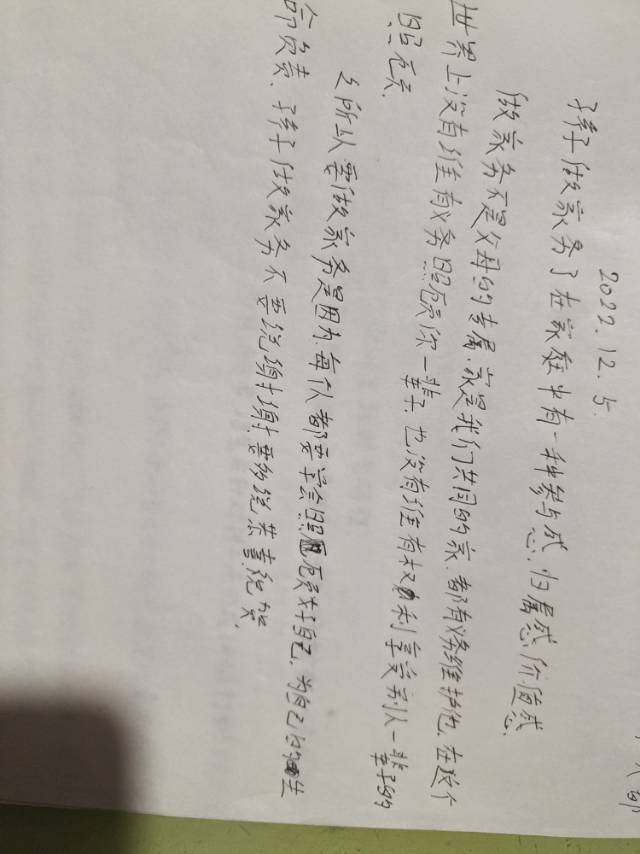 2022.12.5.
孩子做家务了在家庭中有一种参与感.归属感.价值感.
做家务不是父母的专属.家是我们共同的家.都有义务维护他.在这个
世界上没有谁有义务照顾你一辈子.也没有谁有权利享受别人一辈子的
照顾.
之所以要做家务是因为.每个人都要学会照顾好自己.为自己的生
命负责.孩子做家务不要说谢谢.要多说恭喜